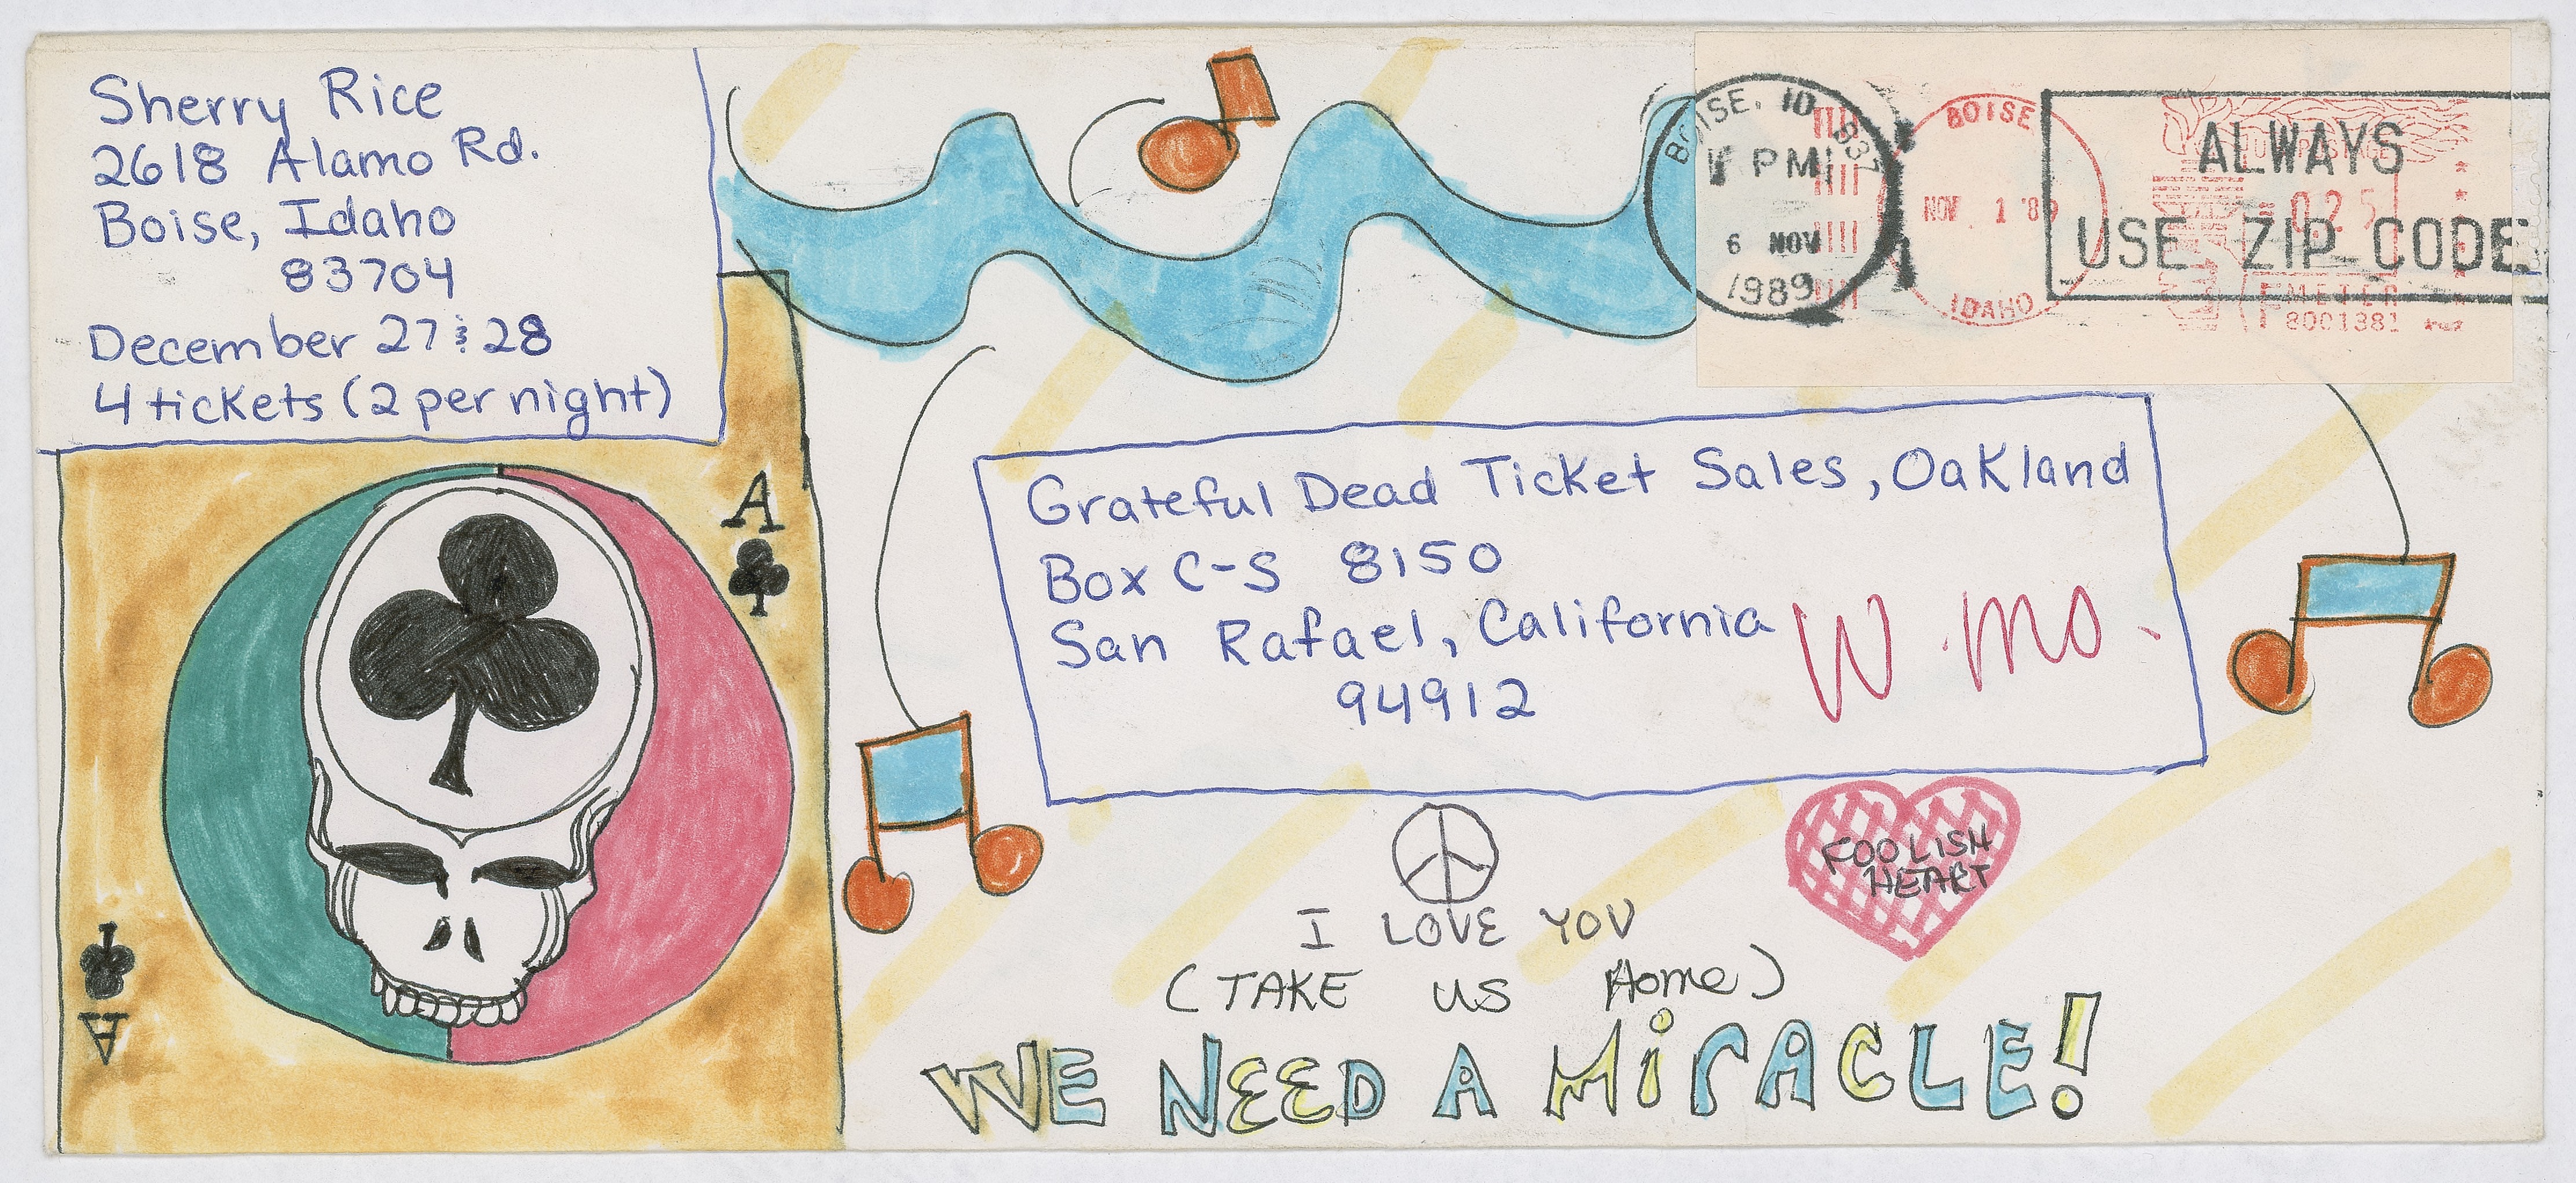 Sherry Rice
2618 Alamo Rd.
Boise, Idaho
83704
December 27 & 28
4 tickets (2 per night)
BOISE, ID 837
PM
6 NOV
1989
BOISE
NOV. 1 '89
IDAHO
U.S. POSTAGE
025
METER
8001381
ALWAYS
USE ZIP CODE
Grateful Dead Ticket Sales, Oakland
Box C-S 8150
San Rafael, California
94912
W. MO.
A
A
FOOLISH
HEART
I LOVE YOU
(TAKE US Home)
WE NEED A MiRACLE!